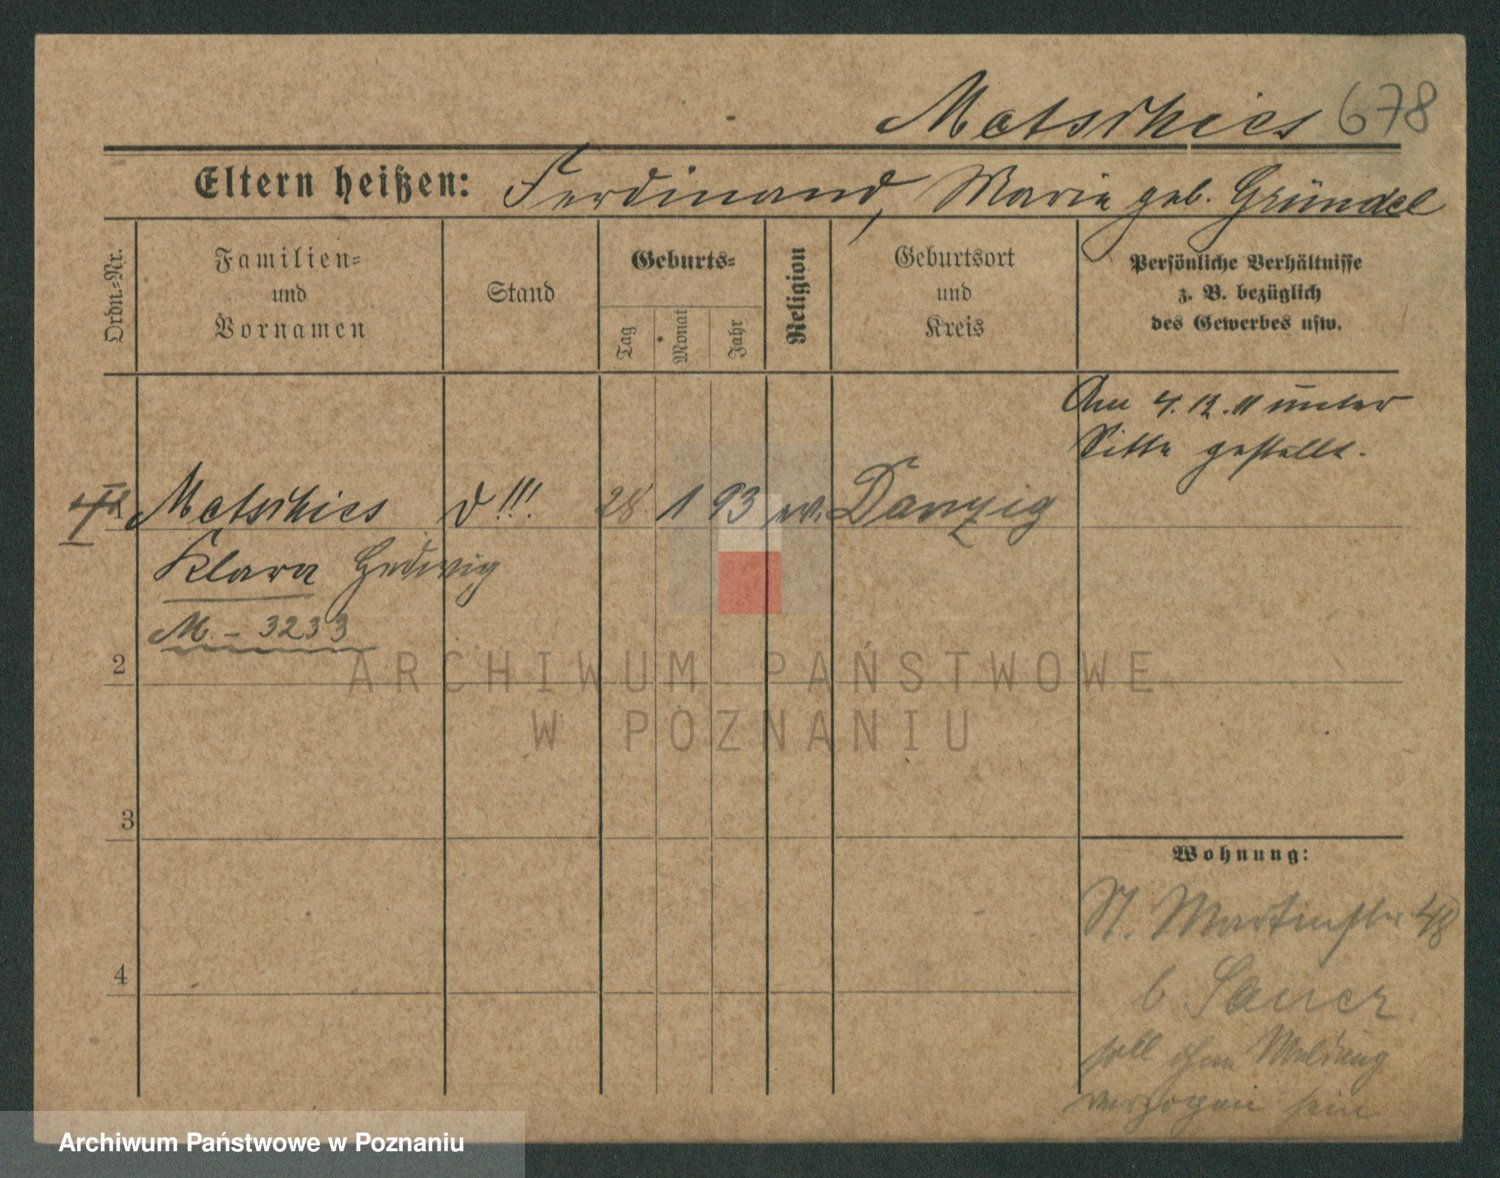 Matschies 678
Eltern heißen: Ferdinand, Marie geb. Gründel
Ordn.-Nr.
Familien-
und
Vornamen
Stand
Geburts-
Tag
Monat
Jahr
Religion
Geburtsort
und
Kreis
Persönliche Verhältnisse
z. B. bezüglich
des Gewerbes usw.
Am 4.12.11 unter
Sitte gestellt.
Matschies d!!! 28 1 93 ev. Danzig
Klara Hedwig
M. - 3233
2
3
4
Wohnung:
St. Martinstr 48
b Sauer
soll ohne Meldung
verzogen sein
ARCHIWUM PAŃSTWOWE
W POZNANIU
Archiwum Państwowe w Poznaniu